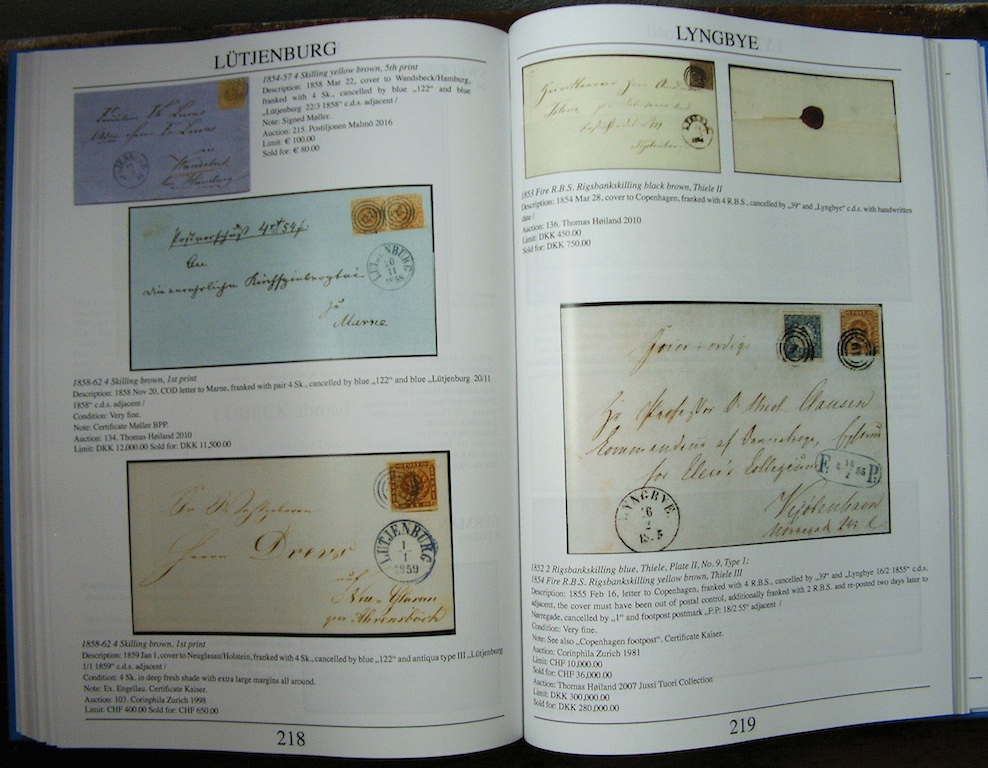 LÜTJENBURG
1854-57 4 Skilling yellow brown, 5th print
Description: 1858 Mar 22, cover to Wandsbeck/Hamburg,
franked with 4 Sk., cancelled by blue „122" and blue
„Lütjenburg 22/3 1858" c.d.s. adjacent /
Note: Signed Møller.
Auction: 215. Postiljonen Malmö 2016
Limit: € 100.00
Sold for: € 80.00
Wandsbeck
bei Hamburg
Postvorschuß
An
zu
Marne
LÜTJENBURG
20
11
1858
1858-62 4 Skilling brown, 1st print
Description: 1858 Nov 20, COD letter to Marne, franked with pair 4 Sk., cancelled by blue „122" and blue „Lütjenburg 20/11
1858" c.d.s. adjacent /
Condition: Very fine.
Note: Certificate Møller BPP.
Auction: 134. Thomas Høiland 2010
Limit: DKK 12,000.00 Sold for: DKK 11,500.00
Herrn Drews
auf
LÜTJENBURG
1
1
1859
1858-62 4 Skilling brown, 1st print
Description: 1859 Jan 1, cover to Neuglasau/Holstein, franked with 4 Sk., cancelled by blue „122" and antiqua type III „Lütjenburg
1/1 1859" c.d.s. adjacent /
Condition: 4 Sk. in deep fresh shade with extra large margins all around.
Note: Ex. Engellau. Certificate Kaiser.
Auction: 103. Corinphila Zurich 1998
Limit: CHF 400.00 Sold for: CHF 650.00
218
LYNGBYE
1853 Fire R.B.S. Rigsbankskilling black brown, Thiele II
Description: 1854 Mar 28, cover to Copenhagen, franked with 4 R.B.S., cancelled by „39" and „Lyngbye" c.d.s. with handwritten
date /
Auction: 136. Thomas Høiland 2010
Limit: DKK 450.00
Sold for: DKK 750.00
Clausen
Kjøbenhavn
LYNGBYE
16
2
F. P.
1852 2 Rigsbankskilling blue, Thiele, Plate II, No. 9, Type 1;
1854 Fire R.B.S. Rigsbankskilling yellow brown, Thiele III
Description: 1855 Feb 16, letter to Copenhagen, franked with 4 R.B.S., cancelled by „39" and „Lyngbye 16/2 1855" c.d.s.
adjacent, the cover must have been out of postal control, additionally franked with 2 R.B.S. and re-posted two days later to
Nørregade, cancelled by „1" and footpost postmark „F.P. 18/2 55" adjacent /
Condition: Very fine.
Note: See also „Copenhagen footpost". Certificate Kaiser.
Auction: Corinphila Zurich 1981
Limit: CHF 10,000.00
Sold for: CHF 36,000.00
Auction: Thomas Høiland 2007 Jussi Tuori Collection
Limit: DKK 300,000.00
Sold for: DKK 280,000.00
219